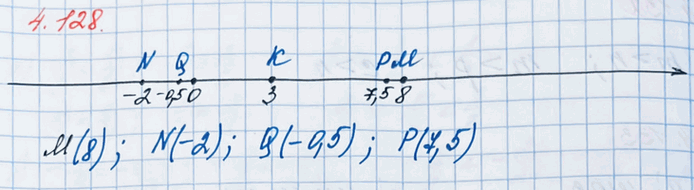 4.128.
N Q K P M
-2 -0,5 0 3 7,5 8
M(8); N(-2); Q(-0,5); P(7,5)